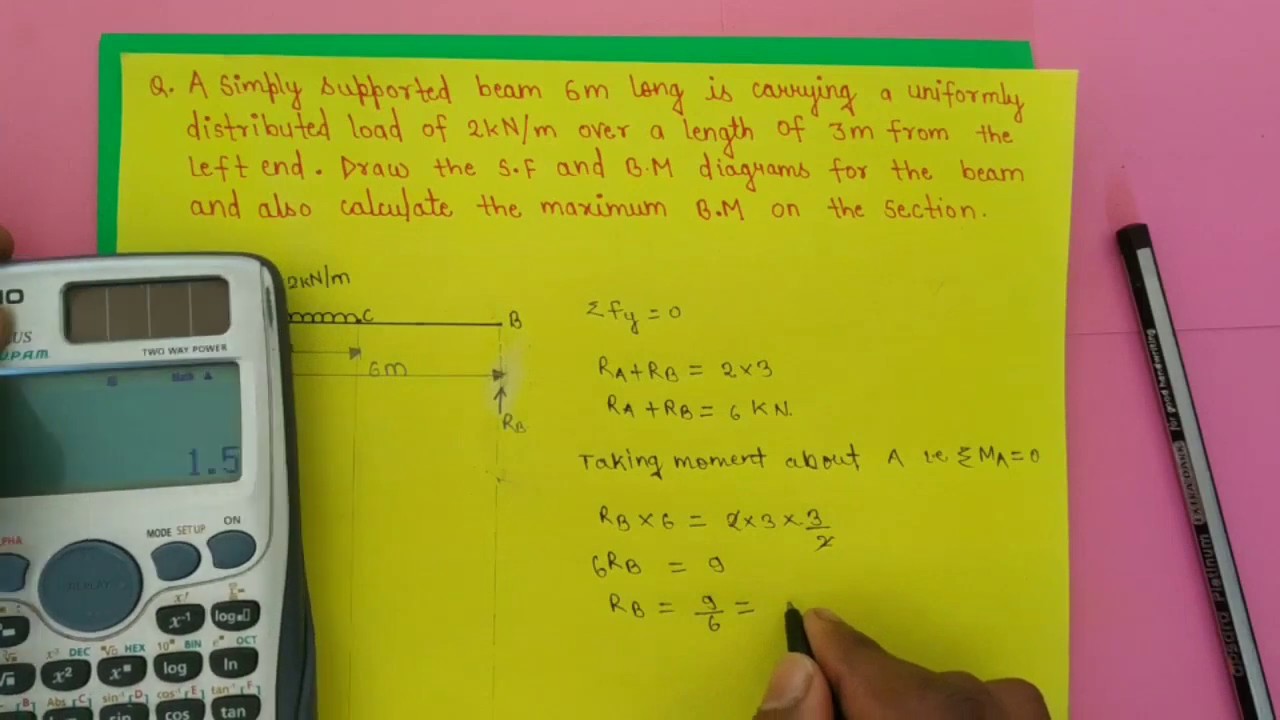 Q. A simply supported beam 6m long is carrying a uniformly
distributed load of 2kN/m over a length of 3m from the
left end. Draw the S.F and B.M diagrams for the beam
and also calculate the maximum B.M on the section.
2kN/m
C
B
6m
RB
Σfy = 0
RA+RB = 2×3
RA+RB = 6 KN.
Taking moment about A i.e ΣMA=0
RB×6 = 2×3×3/2
6RB = 9
RB = 9/6 =
TWO WAY POWER
Math ▲
1.5
MODE SETUP
ON
REPLAY
x!
x⁻¹
log
DEC
HEX
10
BIN
OCT
x²
log
ln
Abs
sin⁻¹
cos⁻¹
tan⁻¹
sin
cos
tan
for good handwriting
EXTRA DARK
Platinum